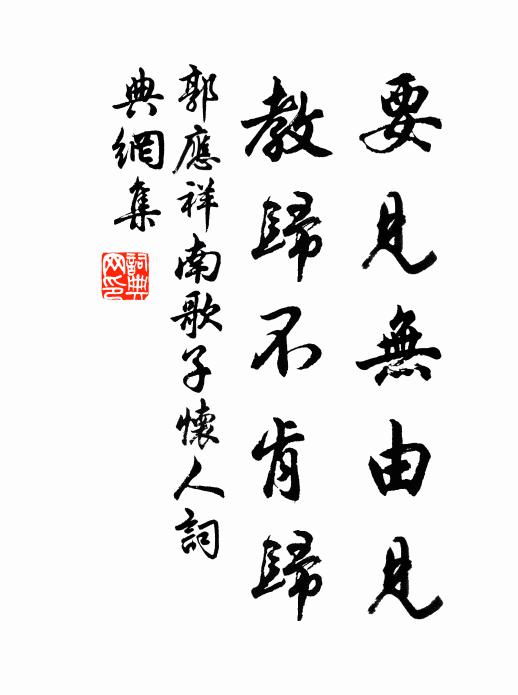 要見無由見
教歸不肯歸
郭應祥南歌子懷人詞
典網集
詞典
网印